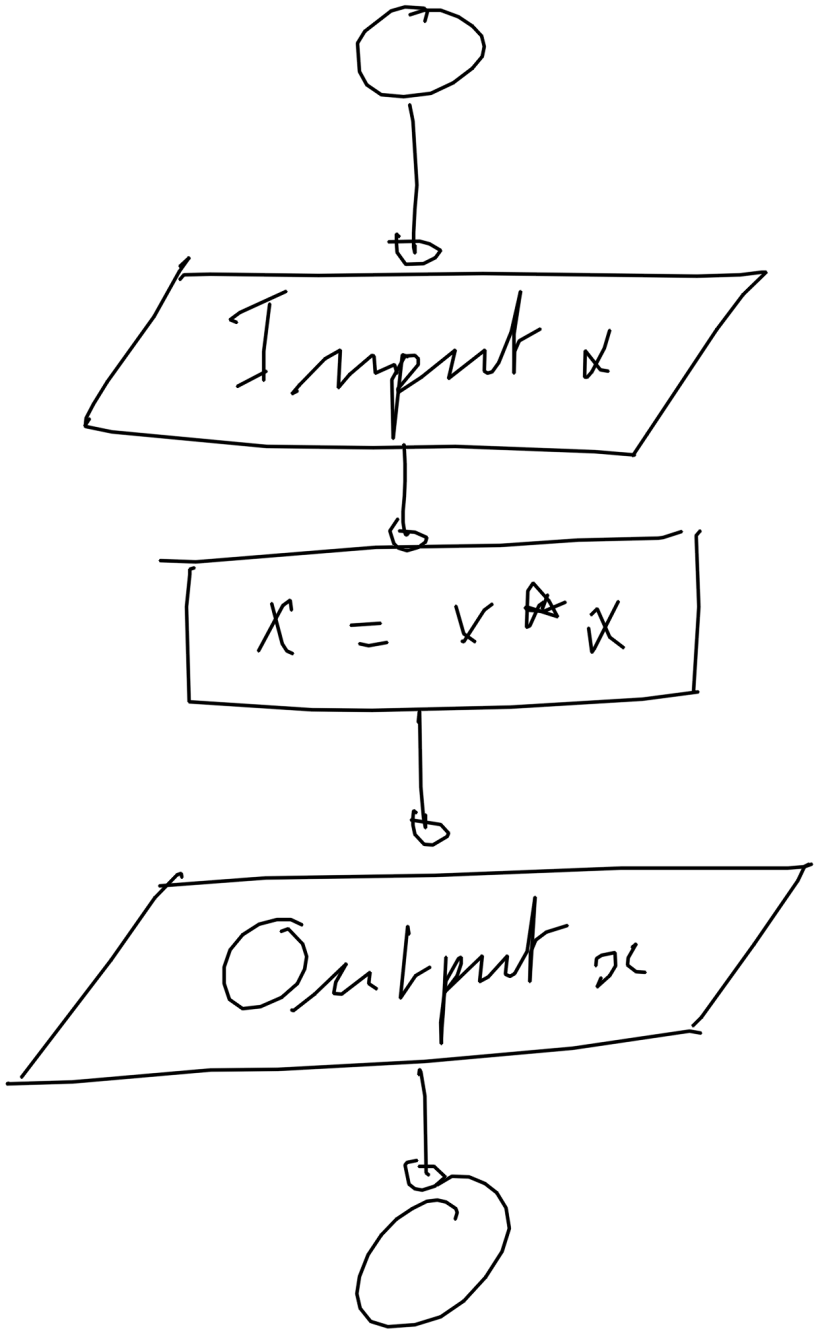 Input x
x = x * x
Output x